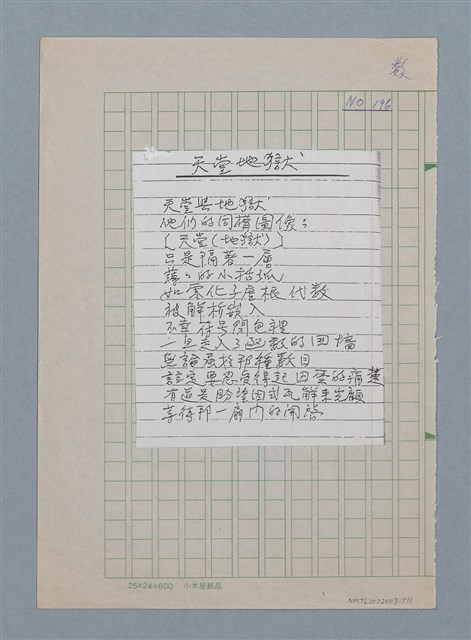 数
NO 196
天堂地獄
天堂與地獄
他們的同構圖像:
〔天堂(地獄)〕
只是隔著一層
薄々的小括弧
如零化子度根 代數
被解析嵌入
不幸 符号間包裡
一旦走入了函數的囲墻
無論屬於那種數目
註定要忍受得起 囚禁的痛楚
有道是盼望因式瓦解来光顧
等待那一扇門的開啓
25×24=600 小木屋紙品
NMTL20220031911